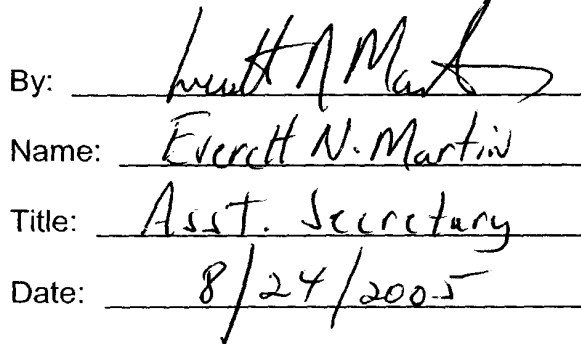 By: Everett N Mart
Name: Everett N. Martin
Title: Asst. Secretary
Date: 8/24/2005